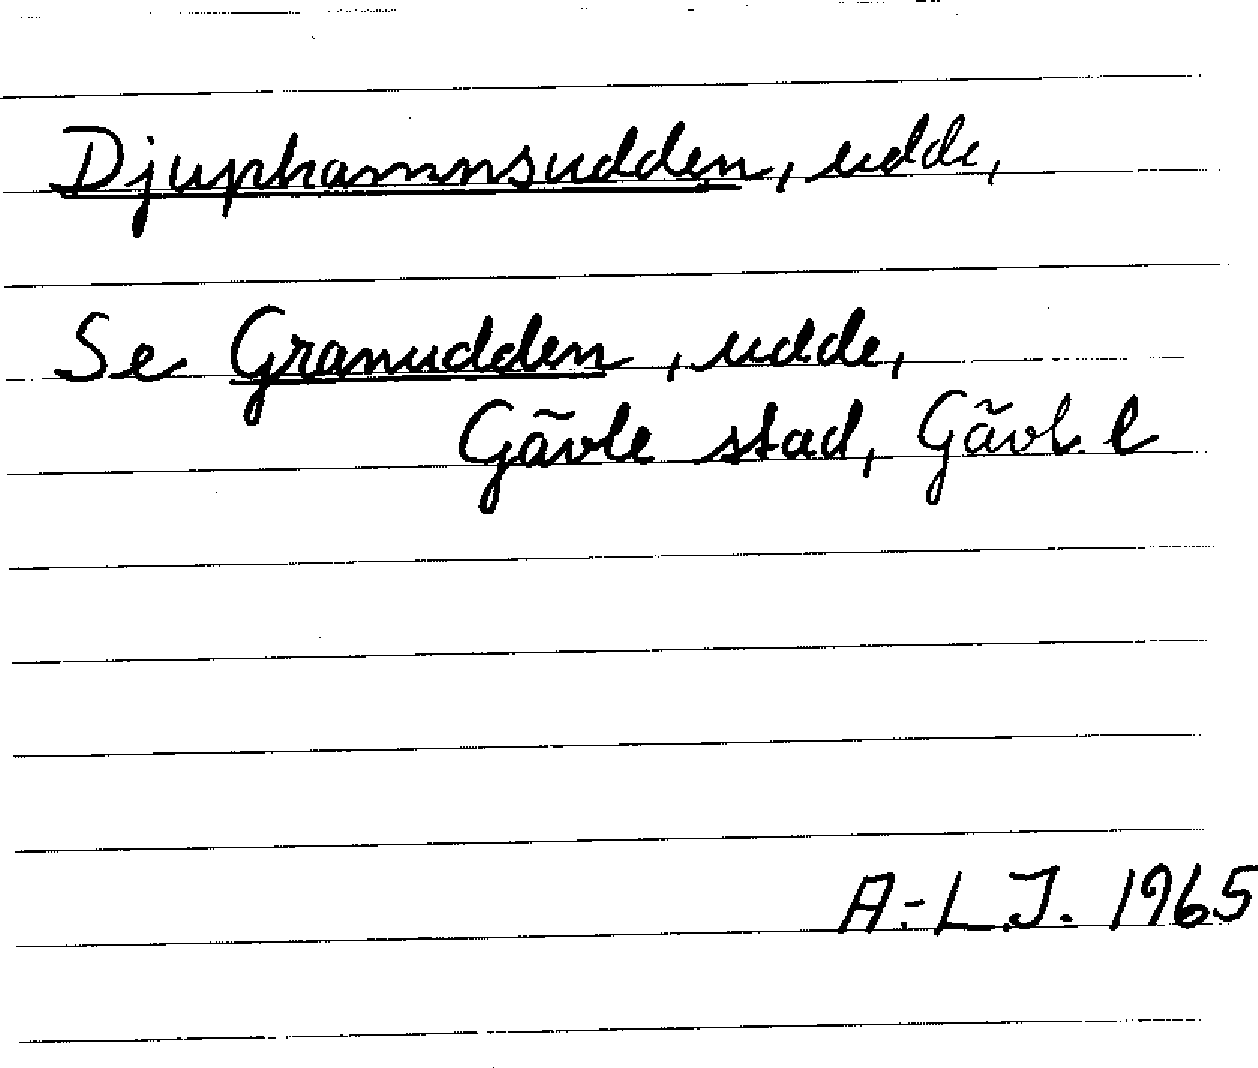 Djuphamnsudden, udde,
Se Granudden, udde,
Gävle stad, Gävl. l
A.-L.J. 1965